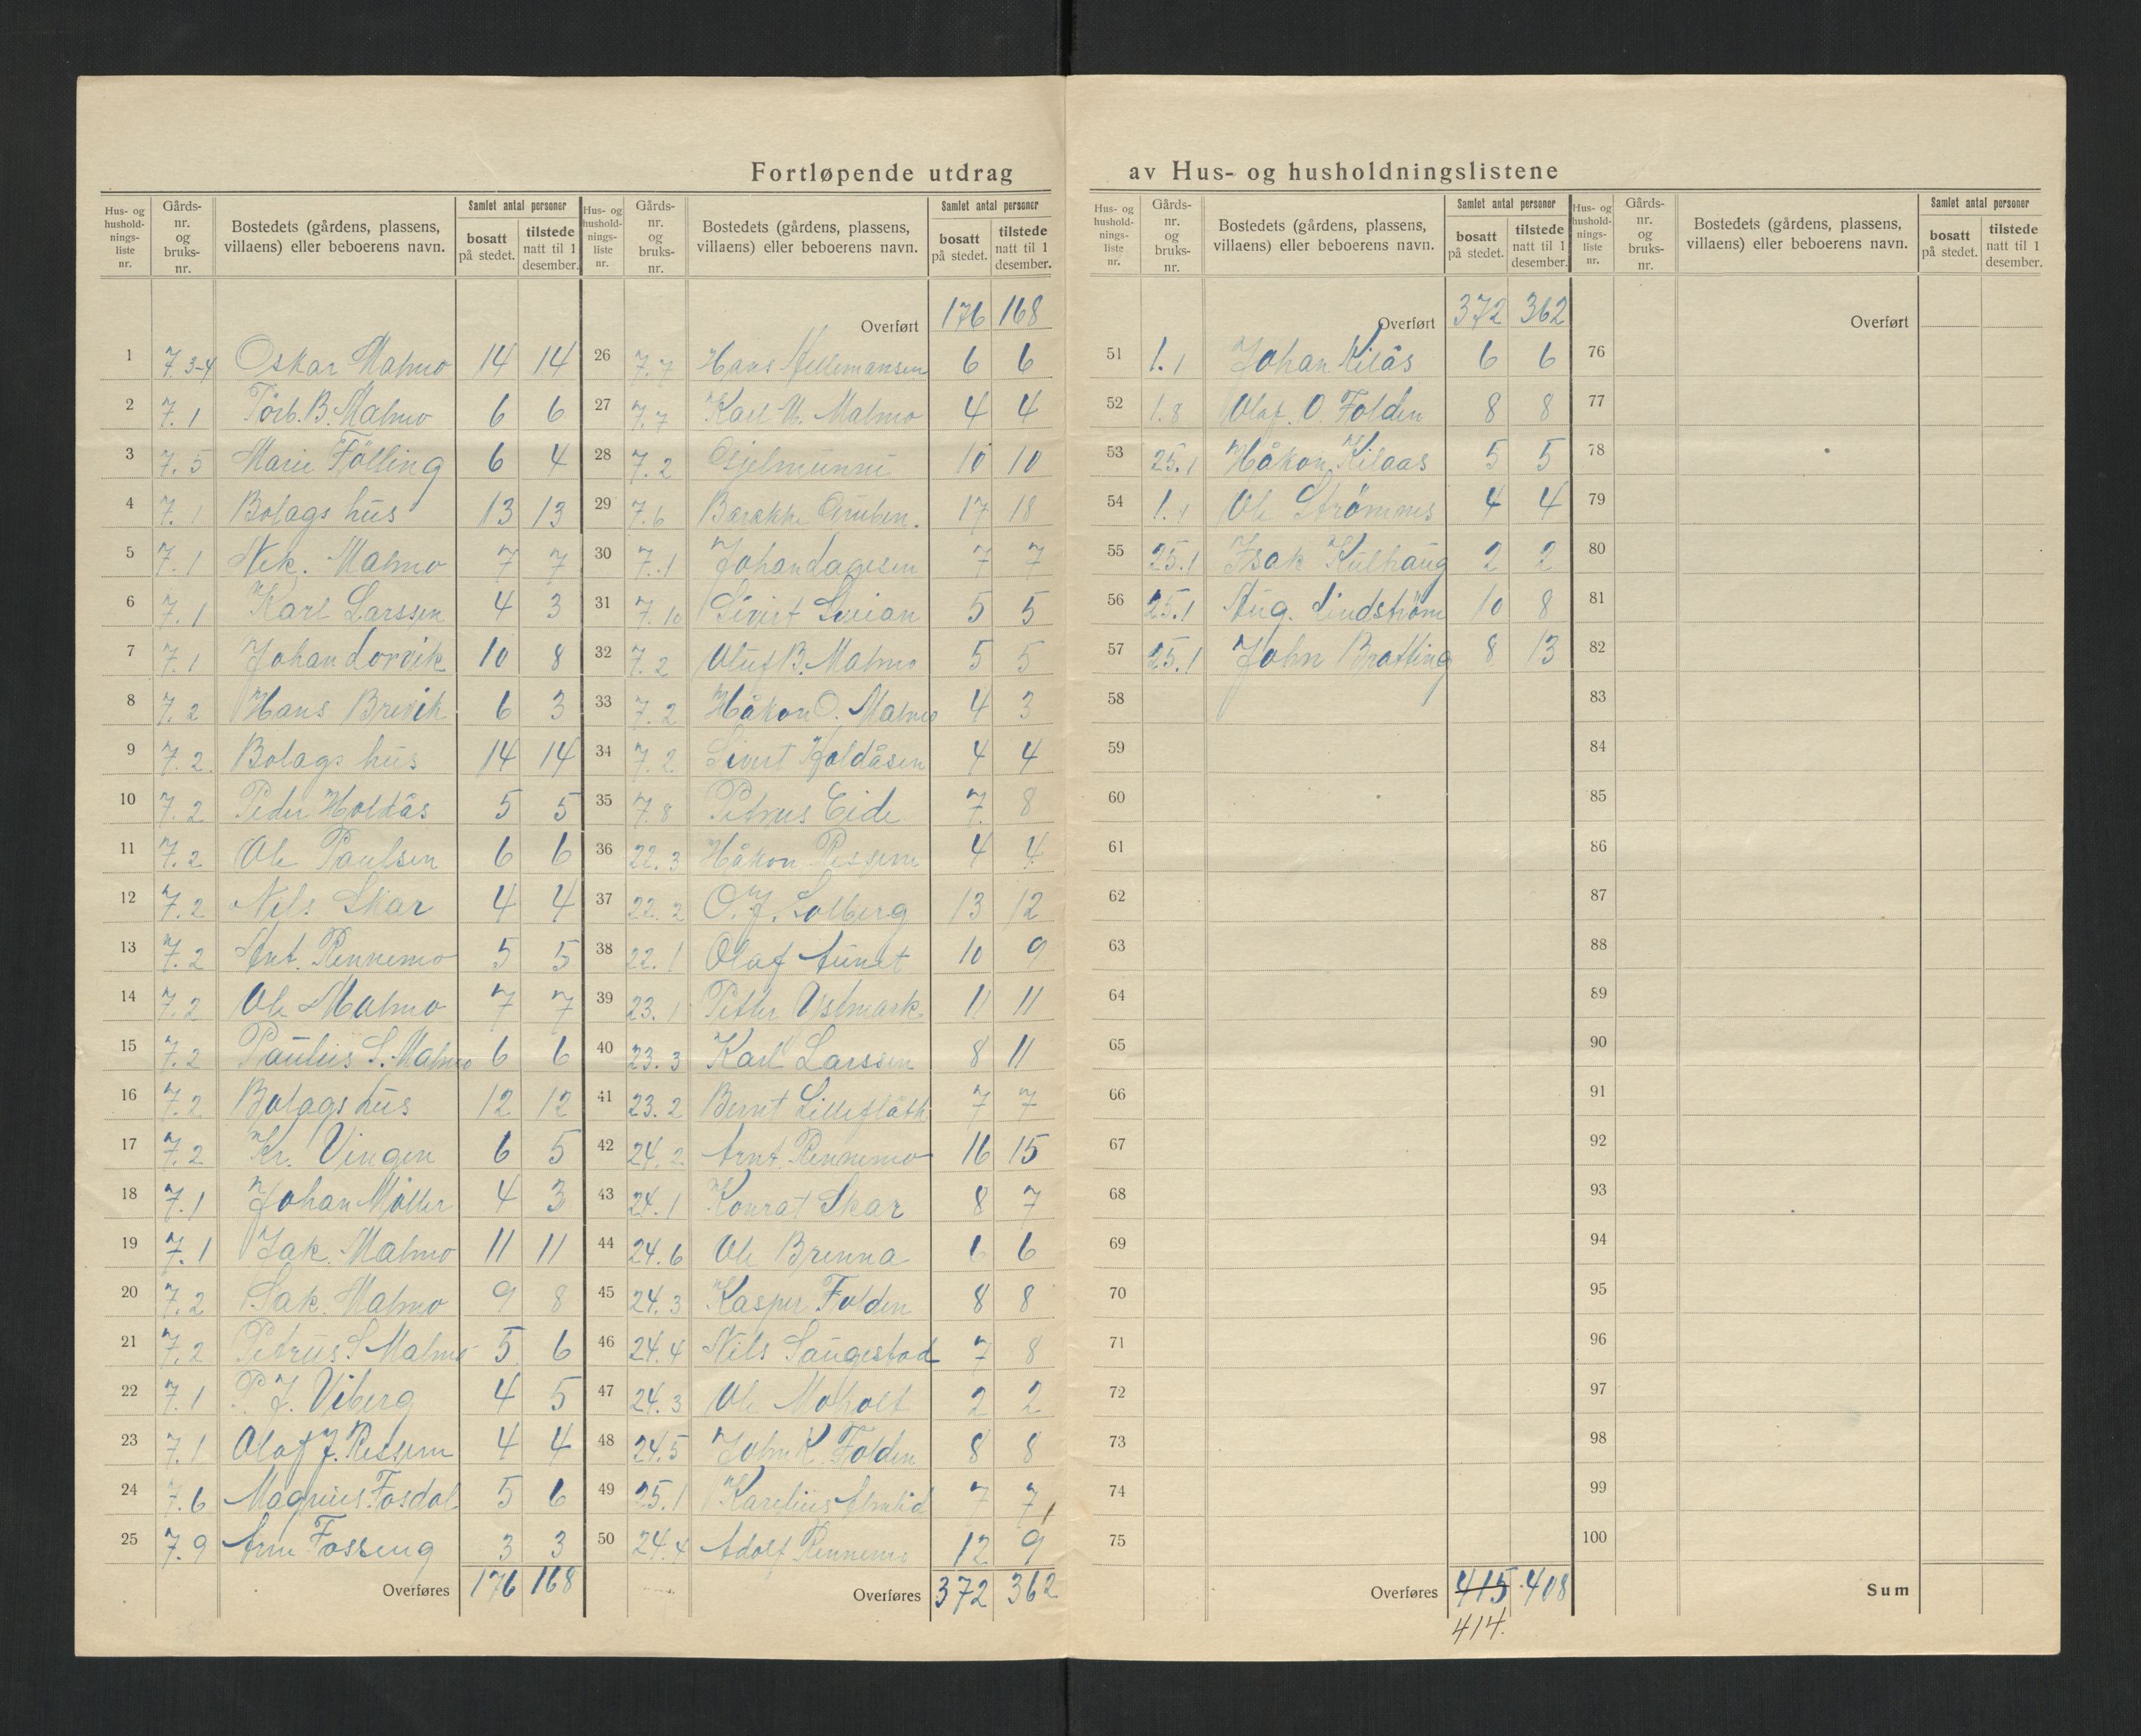 Fortløpende utdrag av Hus- og husholdningslistene
Hus- og hushold-nings-liste nr. | Gårds-nr. og bruks-nr. | Bostedets (gårdens, plassens, villaens) eller beboerens navn. | Samlet antal personer | bosatt på stedet. | tilstede natt til 1 desember.
1 7.3-4 Oskar Malmo 14 14
2 7.1 Torb. B. Malmo 6 6
3 7.5 Marie Fölling 6 4
4 7.1 Bolags hus 13 13
5 7.1 Nek. Malmo 7 7
6 7.1 Karl Larssen 4 3
7 7.1 Johan Lorvik 10 8
8 7.2 Hans Brevik 6 3
9 7.2 Bolags hus 14 14
10 7.2 Peder Holdås 5 5
11 7.2 Ole Paulsen 6 6
12 7.2 Nils Skar 4 4
13 7.2 Ant. Rennemo 5 5
14 7.2 Ole Malmo 7 7
15 7.2 Paulus S. Malmo 6 6
16 7.2 Bolags hus 12 12
17 7.2 Kr. Vingen 6 5
18 7.1 Johan Möller 4 3
19 7.1 Jak. Malmo 11 11
20 7.2 Sak. Malmo 9 8
21 7.2 Petrus S. Malmo 5 6
22 7.1 P. J. Viberg 4 5
23 7.1 Olaf J. Ressem 4 4
24 7.6 Magnus Fosdal 5 6
25 7.9 Arne Fosseng 3 3
Overføres 176 168
Hus- og hushold-nings-liste nr. | Gårds-nr. og bruks-nr. | Bostedets (gårdens, plassens, villaens) eller beboerens navn. | Samlet antal personer | bosatt på stedet. | tilstede natt til 1 desember.
Overført 176 168
26 7.7 Hans Hellemansen 6 6
27 7.7 Karl U. Malmo 4 4
28 7.2 10 10
29 7.6 Barakke Gruben. 17 18
30 7.1 Johan Lagesen 7 7
31 7.10 Sivert 5 5
32 7.2 Oluf B. Malmo 5 5
33 7.2 Håkon O. Malmo 4 3
34 7.2 Sivert Holdåsen 4 4
35 7.8 Petrus Eide 7 8
36 22.3 Håkon Ressem 4 4
37 22.2 O. J. Solberg 13 12
38 22.1 Olaf Aunet 10 9
39 23.1 Petter Ystmark 11 11
40 23.3 Karl Larssen 8 11
41 23.2 Bernt Lilleflåth 7 7
42 24.2 Arnt Rennemo 16 15
43 24.1 Konrat Skar 8 7
44 24.6 Ole Brenna 6 6
45 24.3 Kasper Folden 8 8
46 24.4 Nils Saugestad 7 8
47 24.3 Ole Moholt 2 2
48 24.5 John K. Folden 8 8
49 25.1 Karelius Almlid 7 7
50 24.4 Adolf Rennemo 12 9
Overføres 372 362
Hus- og hushold-nings-liste nr. | Gårds-nr. og bruks-nr. | Bostedets (gårdens, plassens, villaens) eller beboerens navn. | Samlet antal personer | bosatt på stedet. | tilstede natt til 1 desember.
Overført 372 362
51 1.1 Johan Kilås 6 6
52 1.8 Olaf. O. Folden 8 8
53 25.1 Håkon Kilaas 5 5
54 1.1 Ole Strömnes 4 4
55 25.1 Isak Kulhaug 2 2
56 25.1 Aug. Lindström 10 8
57 25.1 John Bratling 8 13
58
59
60
61
62
63
64
65
66
67
68
69
70
71
72
73
74
75
Overføres 415 408
414.
Hus- og hushold-nings-liste nr. | Gårds-nr. og bruks-nr. | Bostedets (gårdens, plassens, villaens) eller beboerens navn. | Samlet antal personer | bosatt på stedet. | tilstede natt til 1 desember.
Overført
76
77
78
79
80
81
82
83
84
85
86
87
88
89
90
91
92
93
94
95
96
97
98
99
100
Sum